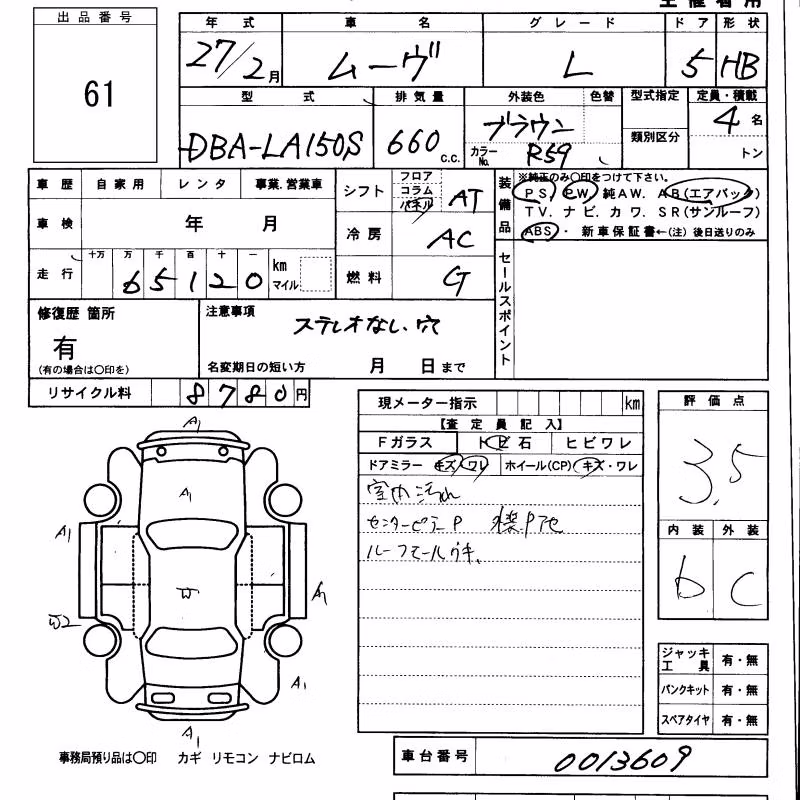 出品番号
61
年式 車名 グレード ドア 形状
27/2月 ムーヴ L 5 HB
型式 排気量 外装色 色替 型式指定 定員・積載
DBA-LA150S 660 c.c. ブラウン カラーNo. R59 類別区分 4名
トン
車歴 自家用 レンタ 事業.営業車
車検 年 月
走行 十万 万 千 百 十 一
65120 km マイル
シフト フロア コラム パネル AT
冷房 AC
燃料 G
装備品
※純正のみ○印をつけて下さい。
PS. PW. 純AW. AB(エアバック)
TV. ナビ. カワ. SR(サンルーフ)
ABS・ 新車保証書←(注)後日送りのみ
セールスポイント
修復歴 箇所
有
(有の場合は○印を)
注意事項
ステレオなし、穴
名変期日の短い方 月 日まで
リサイクル料 8780円
現メーター指示 km
【査定員記入】
Fガラス トビ石 ヒビワレ
ドアミラー キズ・ワレ ホイール(CP) キズ・ワレ
室内汚れ
センターピラーP
ルーフモールウキ.
評価点
3.5
内装 外装
b C
ジャッキ工具 有・無
パンクキット 有・無
スペアタイヤ 有・無
A1
A1
A1
W
A1
W2
A1
A1
事務局預り品は○印 カギ リモコン ナビロム
車台番号 0013609